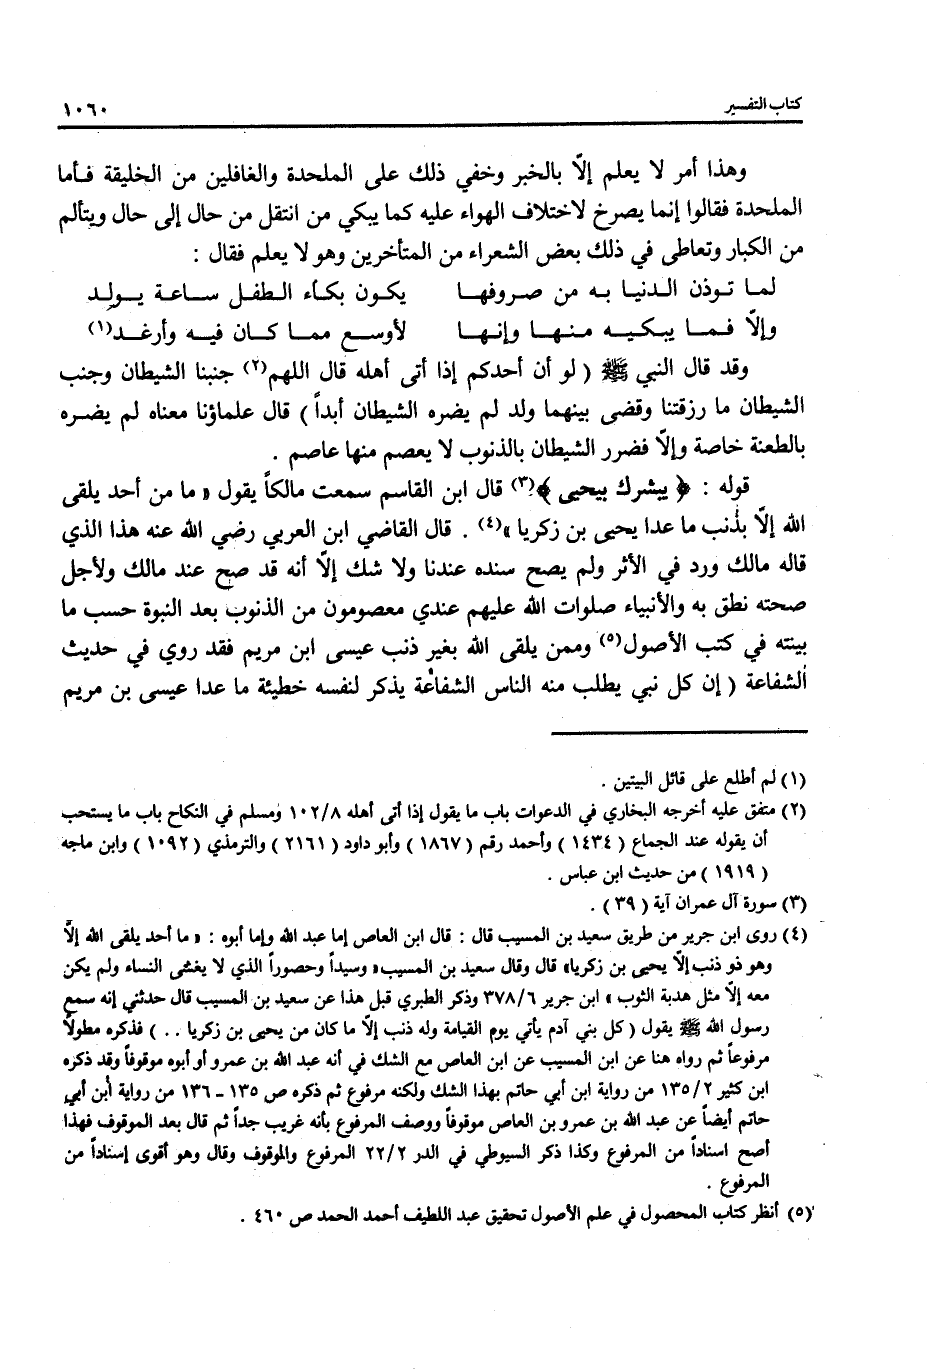 كتاب التفسير ١٠٦٠
وهذا أمر لا يعلم إلّا بالخبر وخفي ذلك على الملحدة والغافلين من الخليقة فأما
الملحدة فقالوا إنما يصرخ لاختلاف الهواء عليه كما يبكي من انتقل من حال إلى حال ويتألم
من الكبار وتعاطى في ذلك بعض الشعراء من المتأخرين وهو لا يعلم فقال :
لما تـوذن الـدنيـا بـه من صـروفهـا يكـون بكـأء الطفـل سـاعـة يـولـد
وإلّا فـمـا يبكـيـه مـنـهـا وإنـهـا لأوسـع ممـا كـان فيـه وأرغـد(١)
وقد قال النبي ﷺ ( لو أن أحدكم إذا أتى أهله قال اللهم(٢) جنبنا الشيطان وجنب
الشيطان ما رزقتنا وقضى بينهما ولد لم يضره الشيطان أبداً ) قال علماؤنا معناه لم يضـره
بالطعنة خاصة وإلّا فضرر الشيطان بالذنوب لا يعصم منها عاصم .
قوله : ﴿ يبشرك بيحيى ﴾(٣) قال ابن القاسم سمعت مالكاً يقول « ما من أحد يلقى
الله إلّا بذنب ما عدا يحيى بن زكريا »(٤) . قال القاضي ابن العربي رضي الله عنه هذا الذي
قاله مالك ورد في الأثر ولم يصح سنده عندنا ولا شك إلّا أنه قد صح عند مالك ولأجل
صحته نطق به والأنبياء صلوات الله عليهم عندي معصومون من الذنوب بعد النبوة حسب ما
بينته في كتب الأصول(٥) وممن يلقى الله بغير ذنب عيسى ابن مريم فقد روي في حديث
الشفاعة ( إن كل نبي يطلب منه الناس الشفاعة يذكر لنفسه خطيئة ما عدا عيسى بن مريم
(١) لم أطلع على قائل البيتين .
(٢) متفق عليه أخرجه البخاري في الدعوات باب ما يقول إذا أتى أهله ١٠٢/٨ ومسلم في النكاح باب ما يستحب
أن يقوله عند الجماع ( ١٤٣٤ ) وأحمد رقم ( ١٨٦٧ ) وأبو داود ( ٢١٦١ ) والترمذي ( ١٠٩٢ ) وابن ماجه
( ١٩١٩ ) من حديث ابن عباس .
(٣) سورة آل عمران آية ( ٣٩ ) .
(٤) روى ابن جرير من طريق سعيد بن المسيب قال : قال ابن العاص إما عبد الله وإما أبوه : « ما أحد يلقى الله إلّا
وهو ذو ذنب إلّا يحيى بن زكريا» قال وقال سعيد بن المسيب« وسيداً وحصوراً الذي لا يغشى النساء ولم يكن
معه إلّا مثل هدبة الثوب » ابن جرير ٣٧٨/٦ وذكر الطبري قبل هذا عن سعيد بن المسيب قال حدثني إنه سمع
رسول الله ﷺ يقول ( كل بني آدم يأتي يوم القيامة وله ذنب إلّا ما كان من يحيى بن زكريا . . ) فذكره مطولاً
مرفوعاً ثم رواه هنا عن ابن المسيب عن ابن العاص مع الشك في أنه عبد الله بن عمرو أو أبوه موقوفاً وقد ذكره
ابن كثير ١٣٥/٢ من رواية ابن أبي حاتم بهذا الشك ولكنه مرفوع ثم ذكره ص ١٣٥ ـ ١٣٦ من رواية أبن أبي
حاتم أيضاً عن عبد الله بن عمرو بن العاص موقوفاً ووصف المرفوع بأنه غريب جداً ثم قال بعد الموقوف فهذا
أصح اسناداً من المرفوع وكذا ذكر السيوطي في الدر ٢٢/٢ المرفوع والموقوف وقال وهو أقوى إسناداً من
المرفوع .
(٥) أنظر كتاب المحصول في علم الأصول تحقيق عبد اللطيف أحمد الحمد ص ٤٦٠ .